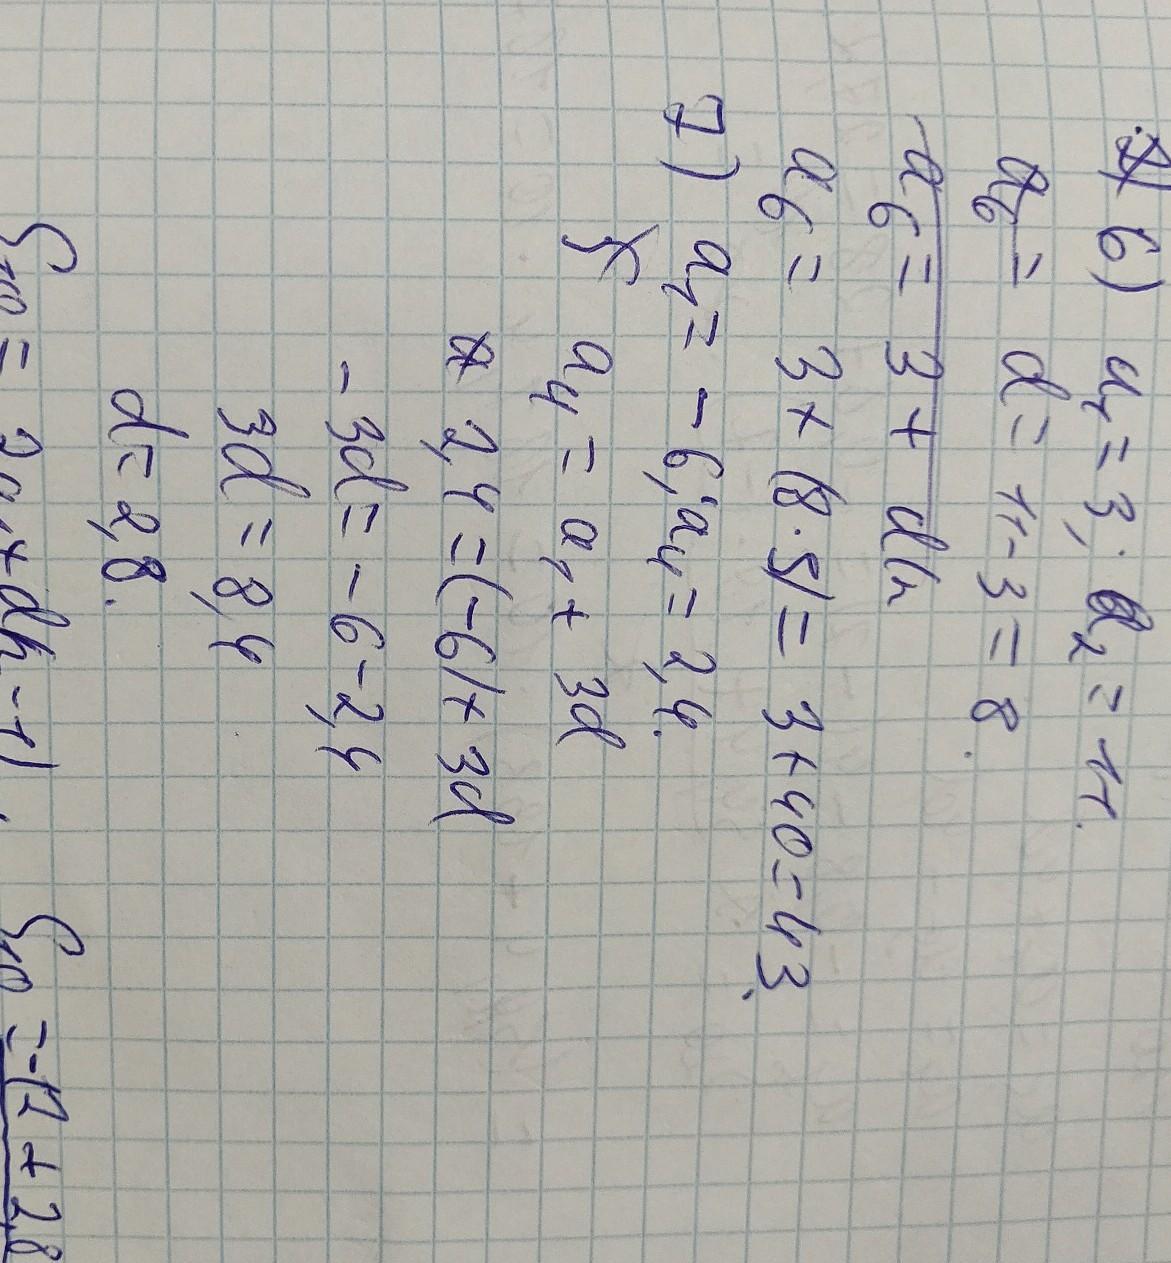 6) a₁ = 3; a₂ = 11.
a₆ = d = 11 - 3 = 8.
a₆ = 3 + dn
a₆ = 3 + (8·5) = 3 + 40 = 43.
7) a₁ = -6; a₄ = 2,4.
a₄ = a₁ + 3d
2,4 = (-6) + 3d
-3d = -6 - 2,4
3d = 8,4
d = 2,8.
S₁₀ = 2a₁ + d(n-1) S₁₀ = -12 + 2,8